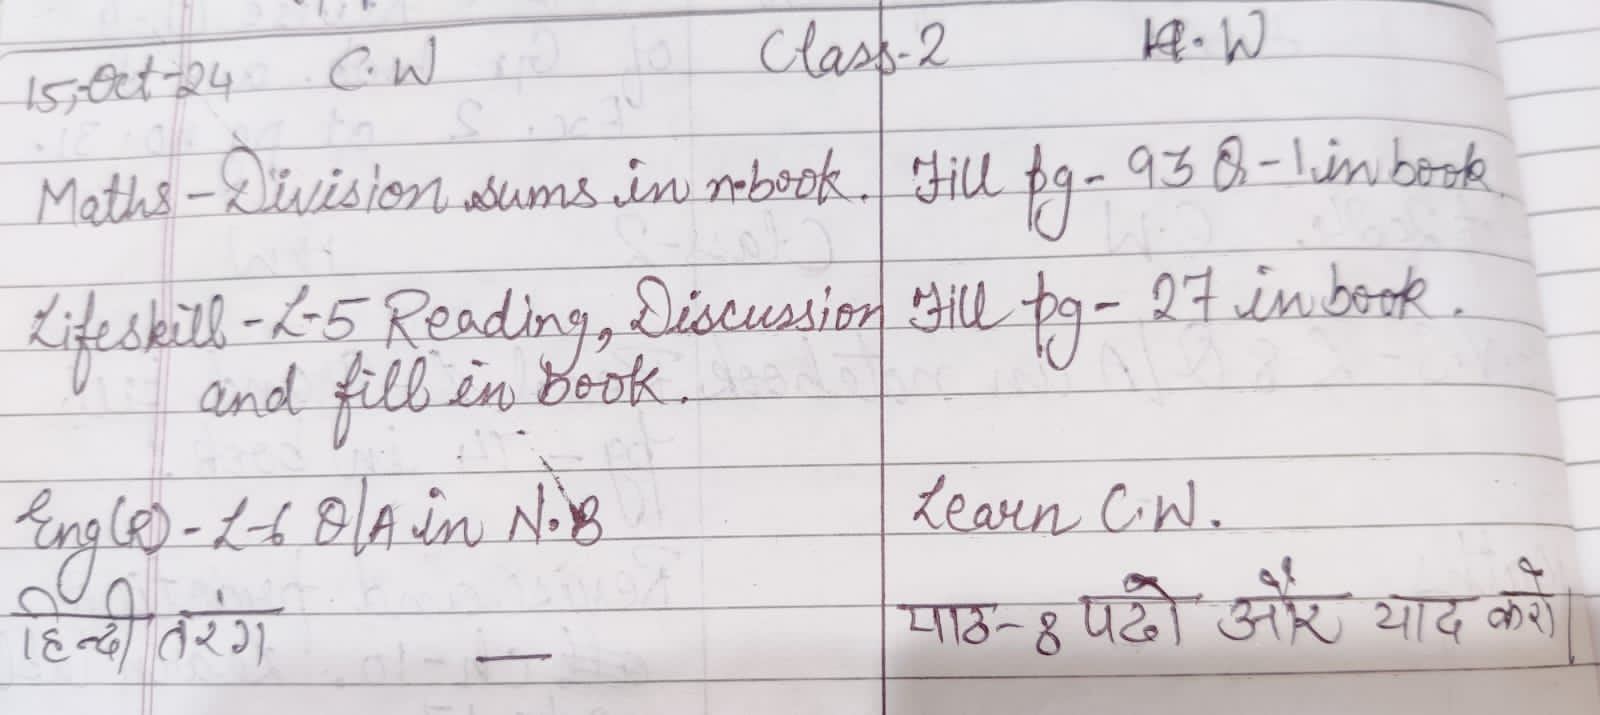 15, Oct-24 C.W Class-2 H.W
Maths - Division sums in n-book. Fill pg- 93 Q-1 in book
Lifeskill - L-5 Reading, Discussion Fill pg- 27 in book.
and fill in book.
Eng(R) - L-6 Q/A in N.B Learn C.W.
हिन्दी तरंग — पाठ-8 पढो और याद करो।